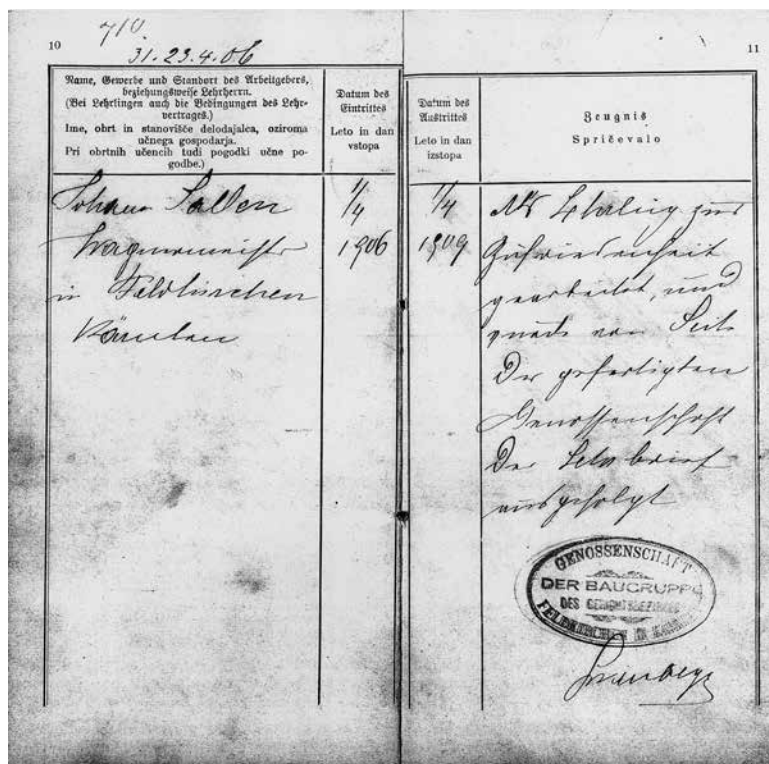 10
710
31. 23. 4. 06
Name, Gewerbe und Standort des Arbeitgebers,
beziehungsweise Lehrherrn.
(Bei Lehrlingen auch die Bedingungen des Lehr-
vertrages.)
Ime, obrt in stanovišče delodajalca, oziroma
učnega gospodarja.
Pri obrtnih učencih tudi pogodki učne po-
godbe.)
Datum des
Eintrittes
Leto in dan
vstopa
Johann
Wagnermeister
in Feldkirchen
Kärnten
1/4
1906
11
Datum des
Austrittes
Leto in dan
izstopa
Zeugnis
Spričevalo
1/4
1909
Als Lehrling zur
Zufriedenheit
gearbeitet, und
wurde von Seite
der gefertigten
Genossenschaft
der Lehrbrief
ausgefolgt
GENOSSENSCHAFT
DER BAUGRUPPE
DES GERICHTSBEZIRKES
FELDKIRCHEN IN